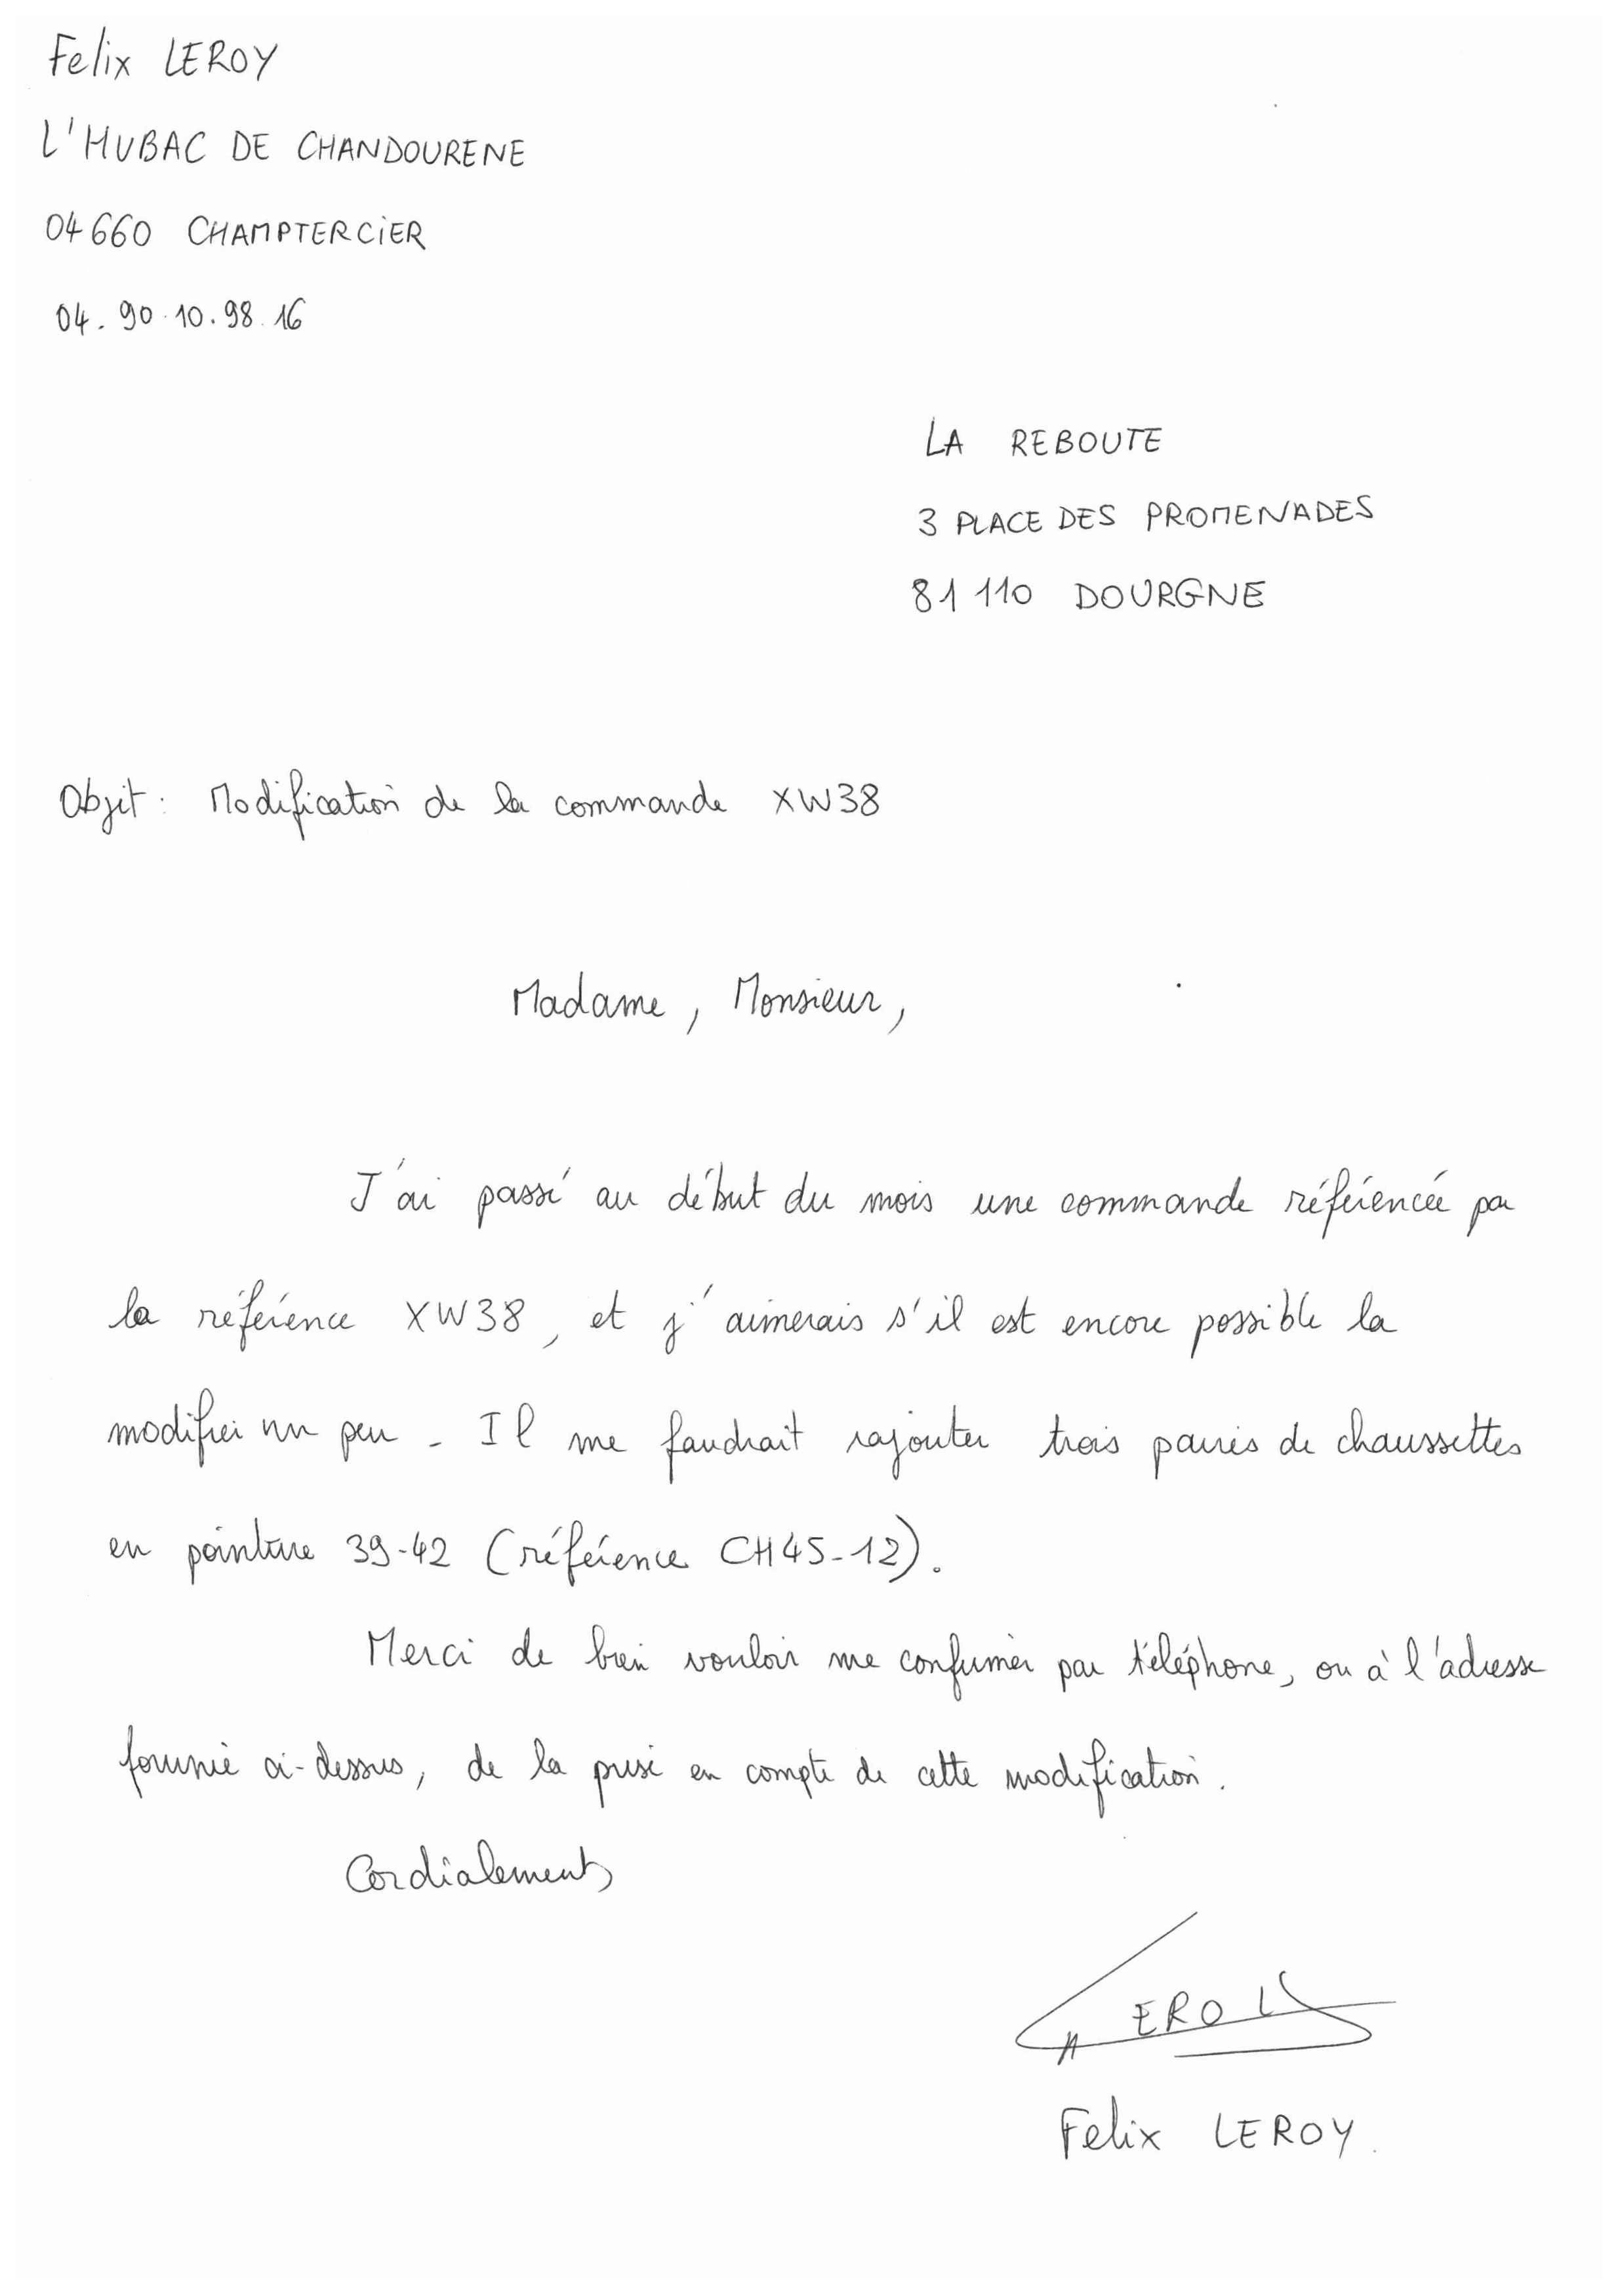 Felix LEROY
L'HUBAC DE CHANDOURENE
04660 CHAMPTERCIER
04.90.10.98.16
LA REBOUTE
3 PLACE DES PROMENADES
81110 DOURGNE
Objet : Modification de la commande XW38
Madame, Monsieur,
J'ai passé au début du mois une commande référencée par
la référence XW38, et j'aimerais s'il est encore possible la
modifier un peu. Il me faudrait rajouter trois paires de chaussettes
en pointure 39-42 (référence CH45-12).
Merci de bien vouloir me confirmer par téléphone, ou à l'adresse
fournie ci-dessus, de la prise en compte de cette modification.
Cordialement,
LEROY
Felix LEROY.